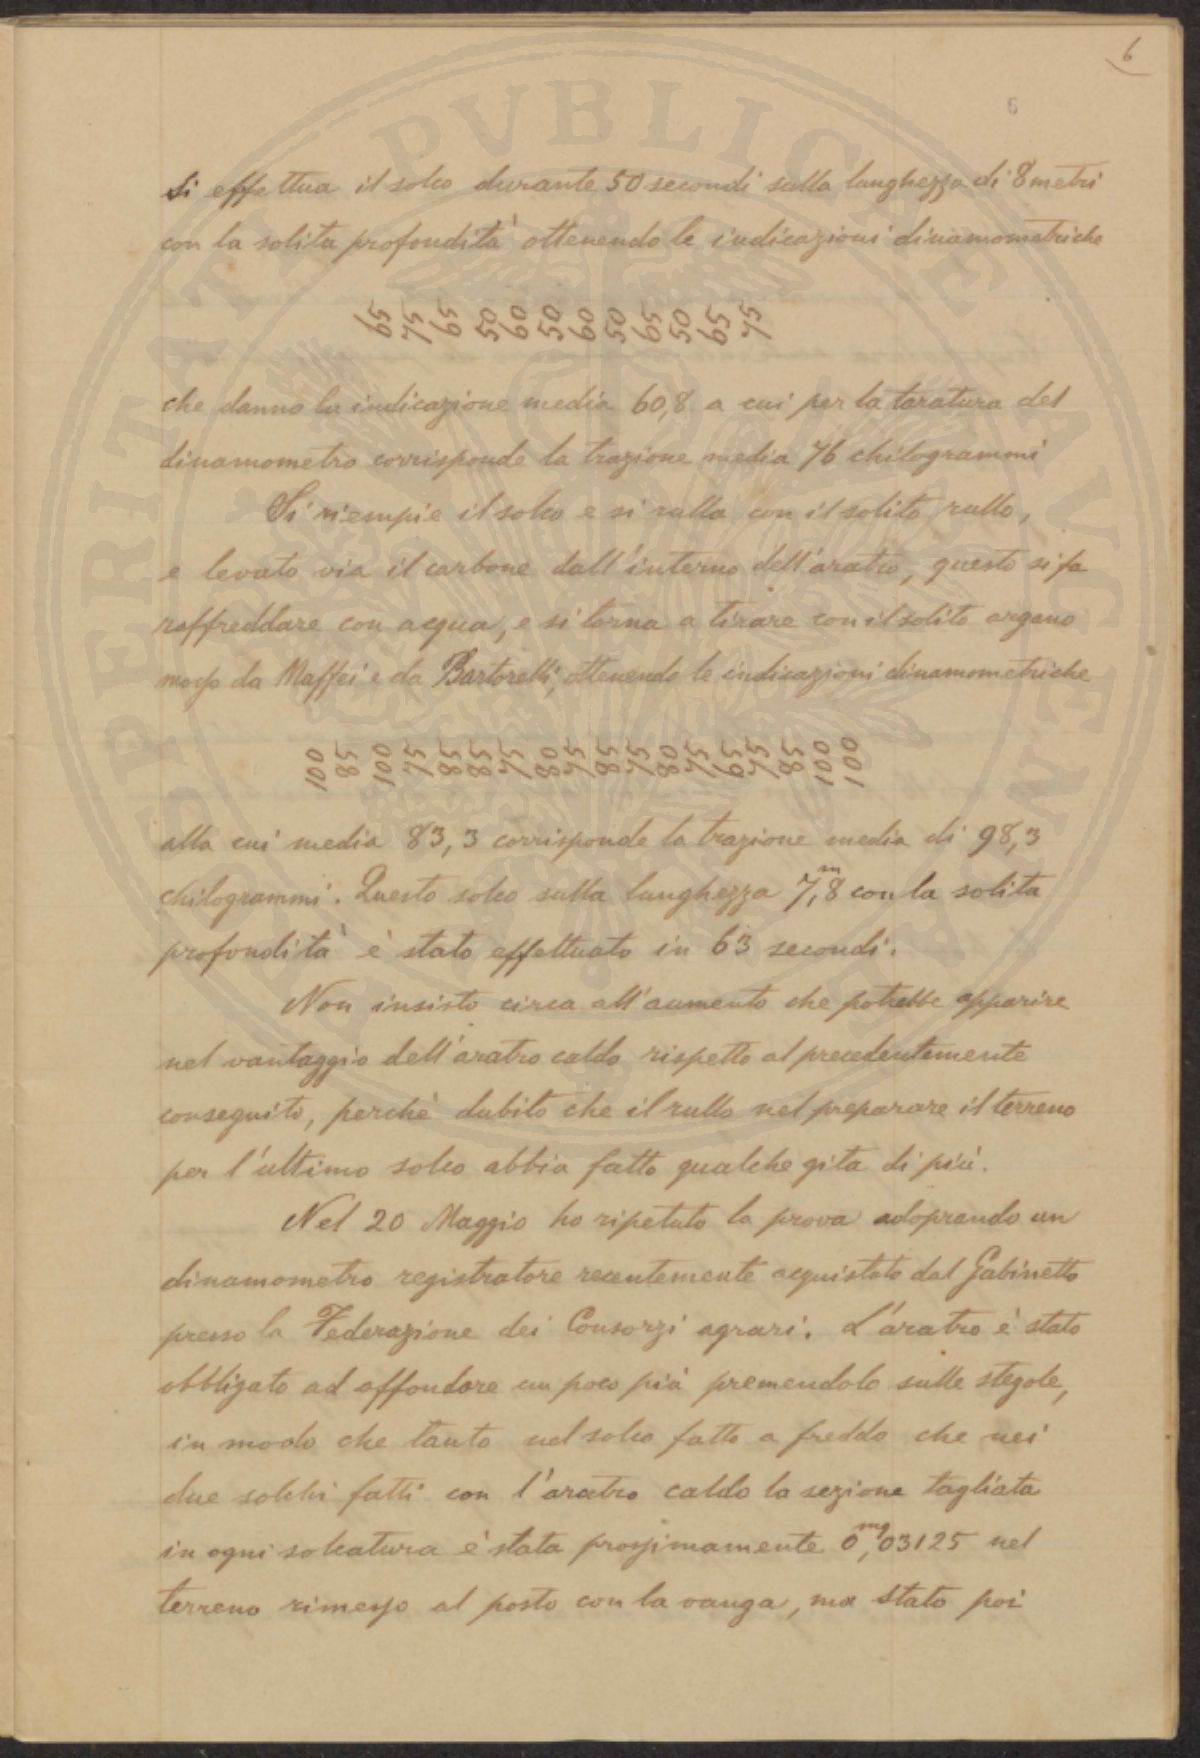 6
6
Si effettua il solco durante 50 secondi sulla lunghezza di 8 metri
con la solita profondità ottenendo le indicazioni dinamometriche
65 75 65 50 60 50 60 50 65 50 65 75
che danno la indicazione media 60,8 a cui per la taratura del
dinamometro corrisponde la trazione media 76 chilogrammi
Si riempie il solco e si rulla con il solito rullo,
e levato via il carbone dall'interno dell'aratro, questo si fa
raffreddare con acqua, e si torna a tirare con il solito argano
mosso da Maffei e da Bartorelli, ottenendo le indicazioni dinamometriche
100 85 100 75 85 85 75 80 75 85 75 80 75 65 75 85 100 100
alla cui media 83,3 corrisponde la trazione media di 98,3
chilogrammi. Questo solco sulla lunghezza 7,m8 con la solita
profondità è stato effettuato in 63 secondi.
Non insisto circa all'aumento che potrebbe apparire
nel vantaggio dell'aratro caldo rispetto al precedentemente
conseguito, perchè dubito che il rullo nel preparare il terreno
per l'ultimo solco abbia fatto qualche gita di più.
Nel 20 Maggio ho ripetuto la prova adoprando un
dinamometro registratore recentemente acquistato dal Gabinetto
presso la Federazione dei Consorzi agrari. L'aratro è stato
obbligato ad affondare un poco più premendolo sulle stegole,
in modo che tanto nel solco fatto a freddo che nei
due solchi fatti con l'aratro caldo la sezione tagliata
in ogni solcatura è stata prossimamente 0,mq03125 nel
terreno rimesso al posto con la vanga, ma stato poi